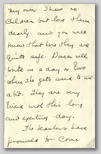 my own I have no
children but love them
dearly and you will
know that here they are
quite safe. Doreen will
write in a day or two
when she gets used to us
a bit. They are very
tired with this long
and exciting day.
The teachers have
promised to come